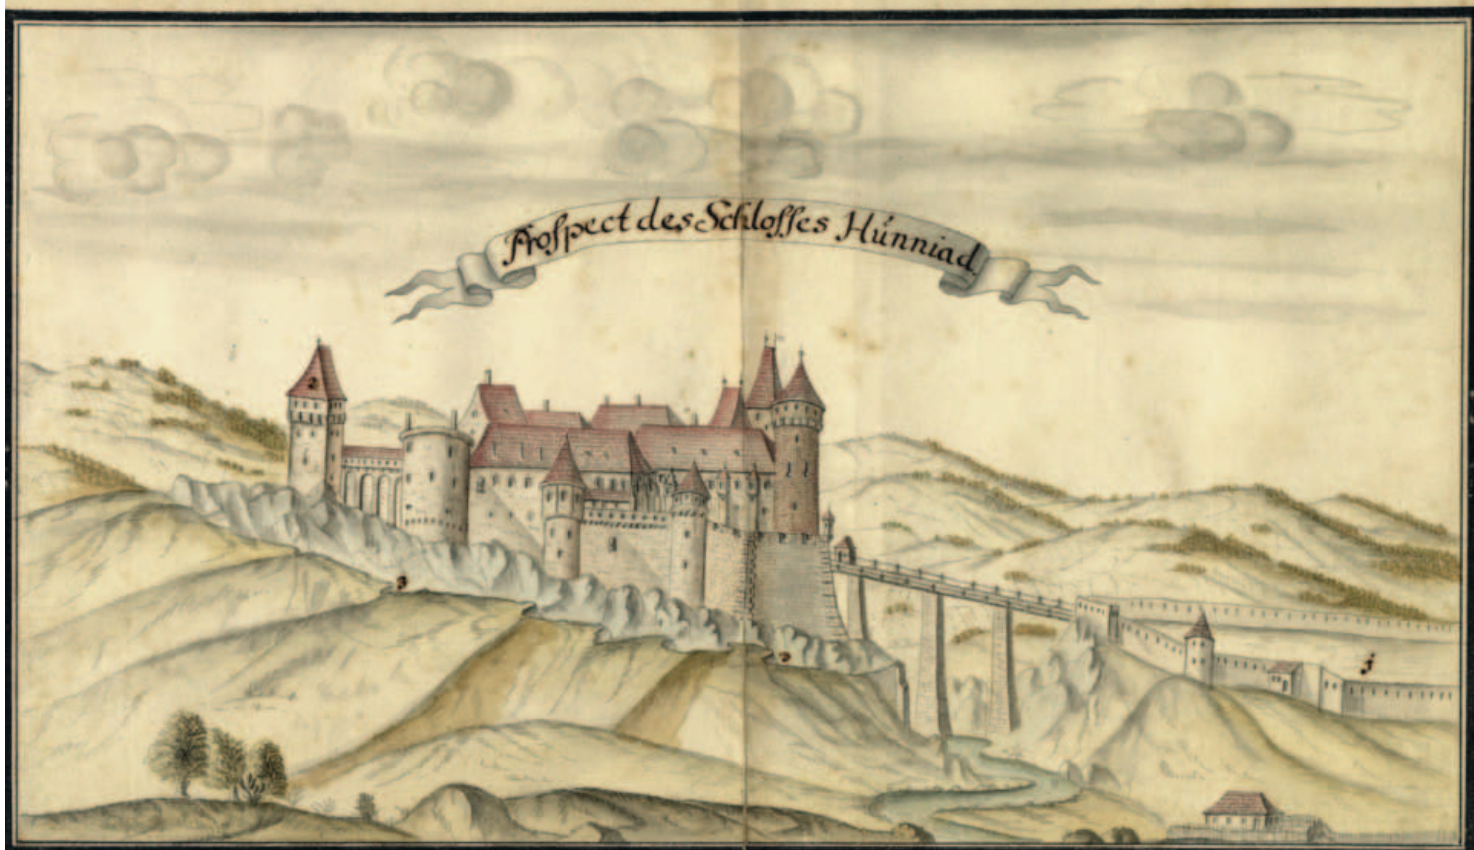 Prospect des Schlosses Húnniad.
2
3